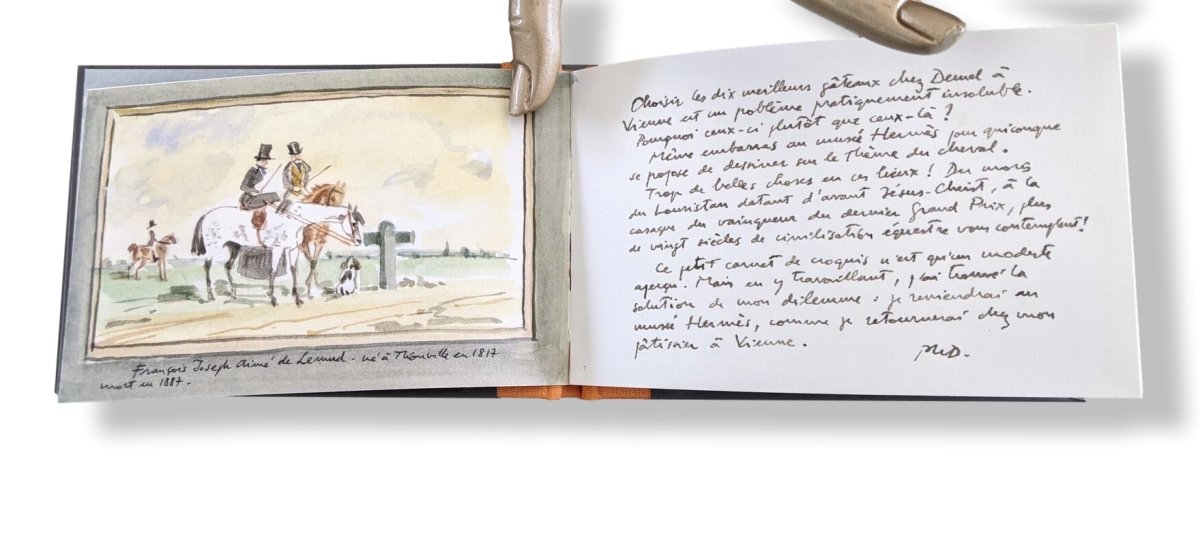 François Joseph Aimé de Lemud - né à Thionville en 1817
mort en 1887.
Choisir les dix meilleurs gâteaux chez Demel à
Vienne est un problème pratiquement insoluble.
Pourquoi ceux-ci plutôt que ceux-là ?
Même embarras au musée Hermès pour quiconque
se propose de dessiner sur le thème du cheval.
Trop de belles choses en ces lieux ! Du mors
du Louristan datant d'avant Jésus-Christ, à la
casaque du vainqueur du dernier Grand Prix, plus
de vingt siècles de civilisation équestre vous contemplent !
Ce petit carnet de croquis n'est qu'un modeste
aperçu. Mais en y travaillant, j'ai trouvé la
solution de mon dilemme : je reviendrai au
musée Hermès, comme je retournerai chez mon
pâtissier à Vienne.
Ph.D.